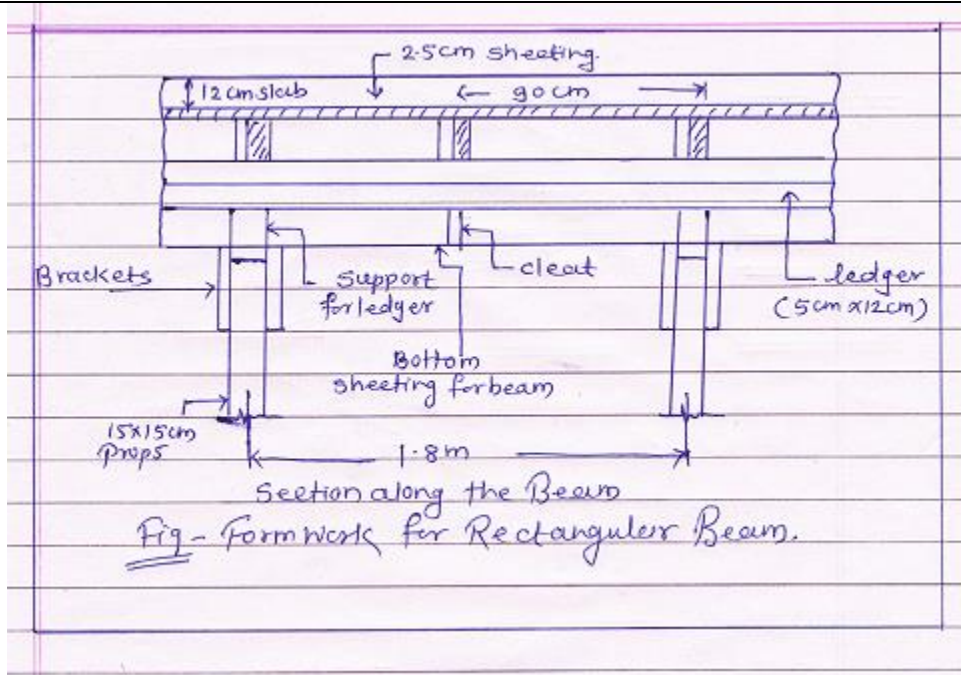 2.5cm sheeting.
12cm slab
90cm
Brackets
Support
for ledger
cleat
ledger
(5cm x12cm)
Bottom
sheeting for beam
15x15cm
Props
1.8m
Section along the Beam
Fig - Formwork for Rectangular Beam.